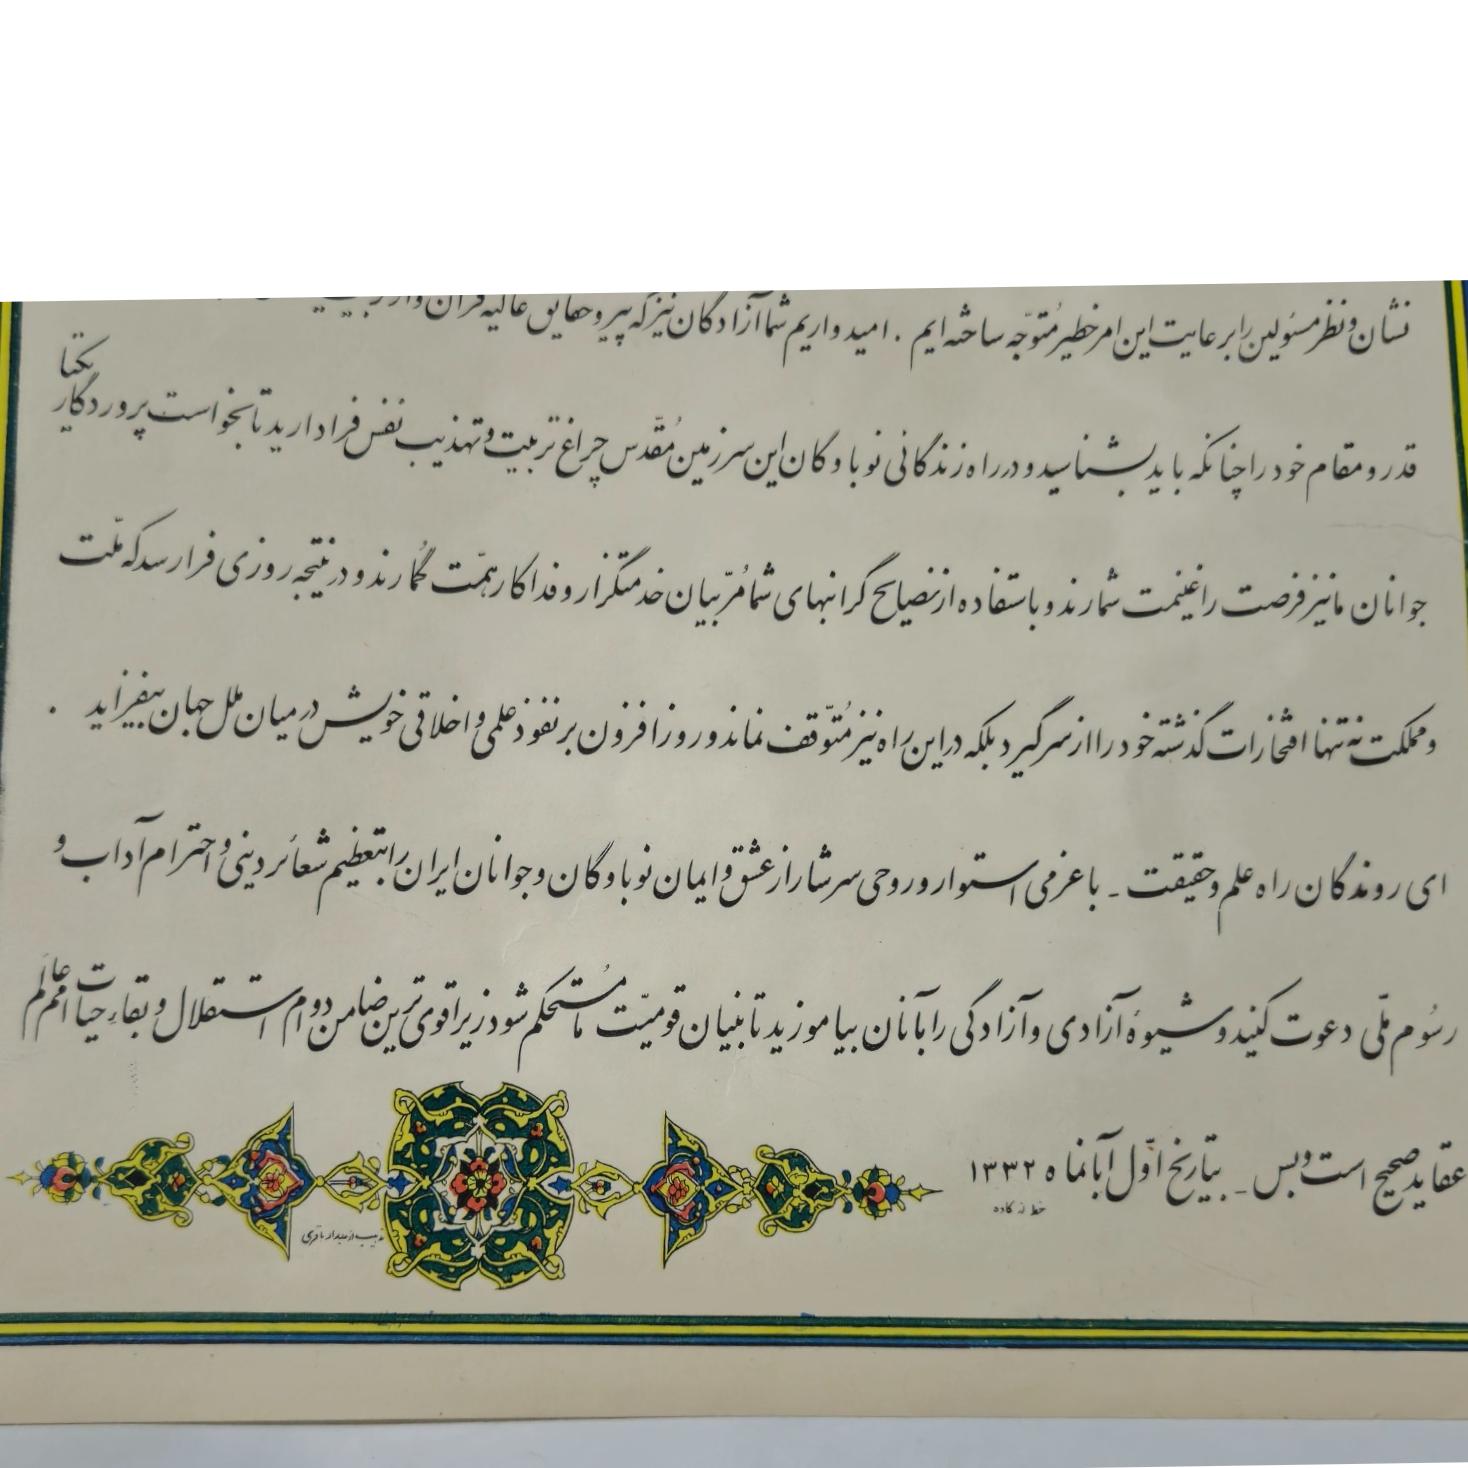 نشان و نظر مسئولین را برعایت این امر خطیر مُتوّجه ساخته ایم . امیدواریم شما آزادگان نیز که پیرو حقایق عالیه قرآن
قدر و مقام خود را چنانکه باید بشناسید و در راه زندگانی نوباوگان این سرزمین مُقدّس چراغ تربیت و تهذیب نفس فرا دارید تا بخواست پروردگار یکتا
جوانان ما نیز فرصت را غنیمت شمارند و با ستفاده از نصایح گرانبهای شما مُربّیان خدمتگزار و فداکار همّت گُمارند و در نتیجه روزی فرا رسد که ملّت
و مملکت نه تنها افتخارات گذشته خود را از سر گیرد بلکه در این راه نیز مُتوّقف نماند و روزافزون بر نفوذ علمی و اخلاقی خویش در میان ملل جهان بیفزاید .
ای روندگان راه علم و حقیقت - با عزمی استوار و روحی سرشار از عشق و ایمان نوباوگان و جوانان ایران را بتعظیم شعائر دینی و احترام آداب و
رسُوم ملّی دعوت کنید و شیوهٔ آزادی و آزادگی را بآنان بیاموزید تا بنیان قومیّت ما مُستحکم شود زیرا قوی ترین ضامن دوام استقلال و بقاء حیات اُمم عالَم
عقاید صحیح است و بس - بتاریخ اوّل آبانماه ۱۳۳۲